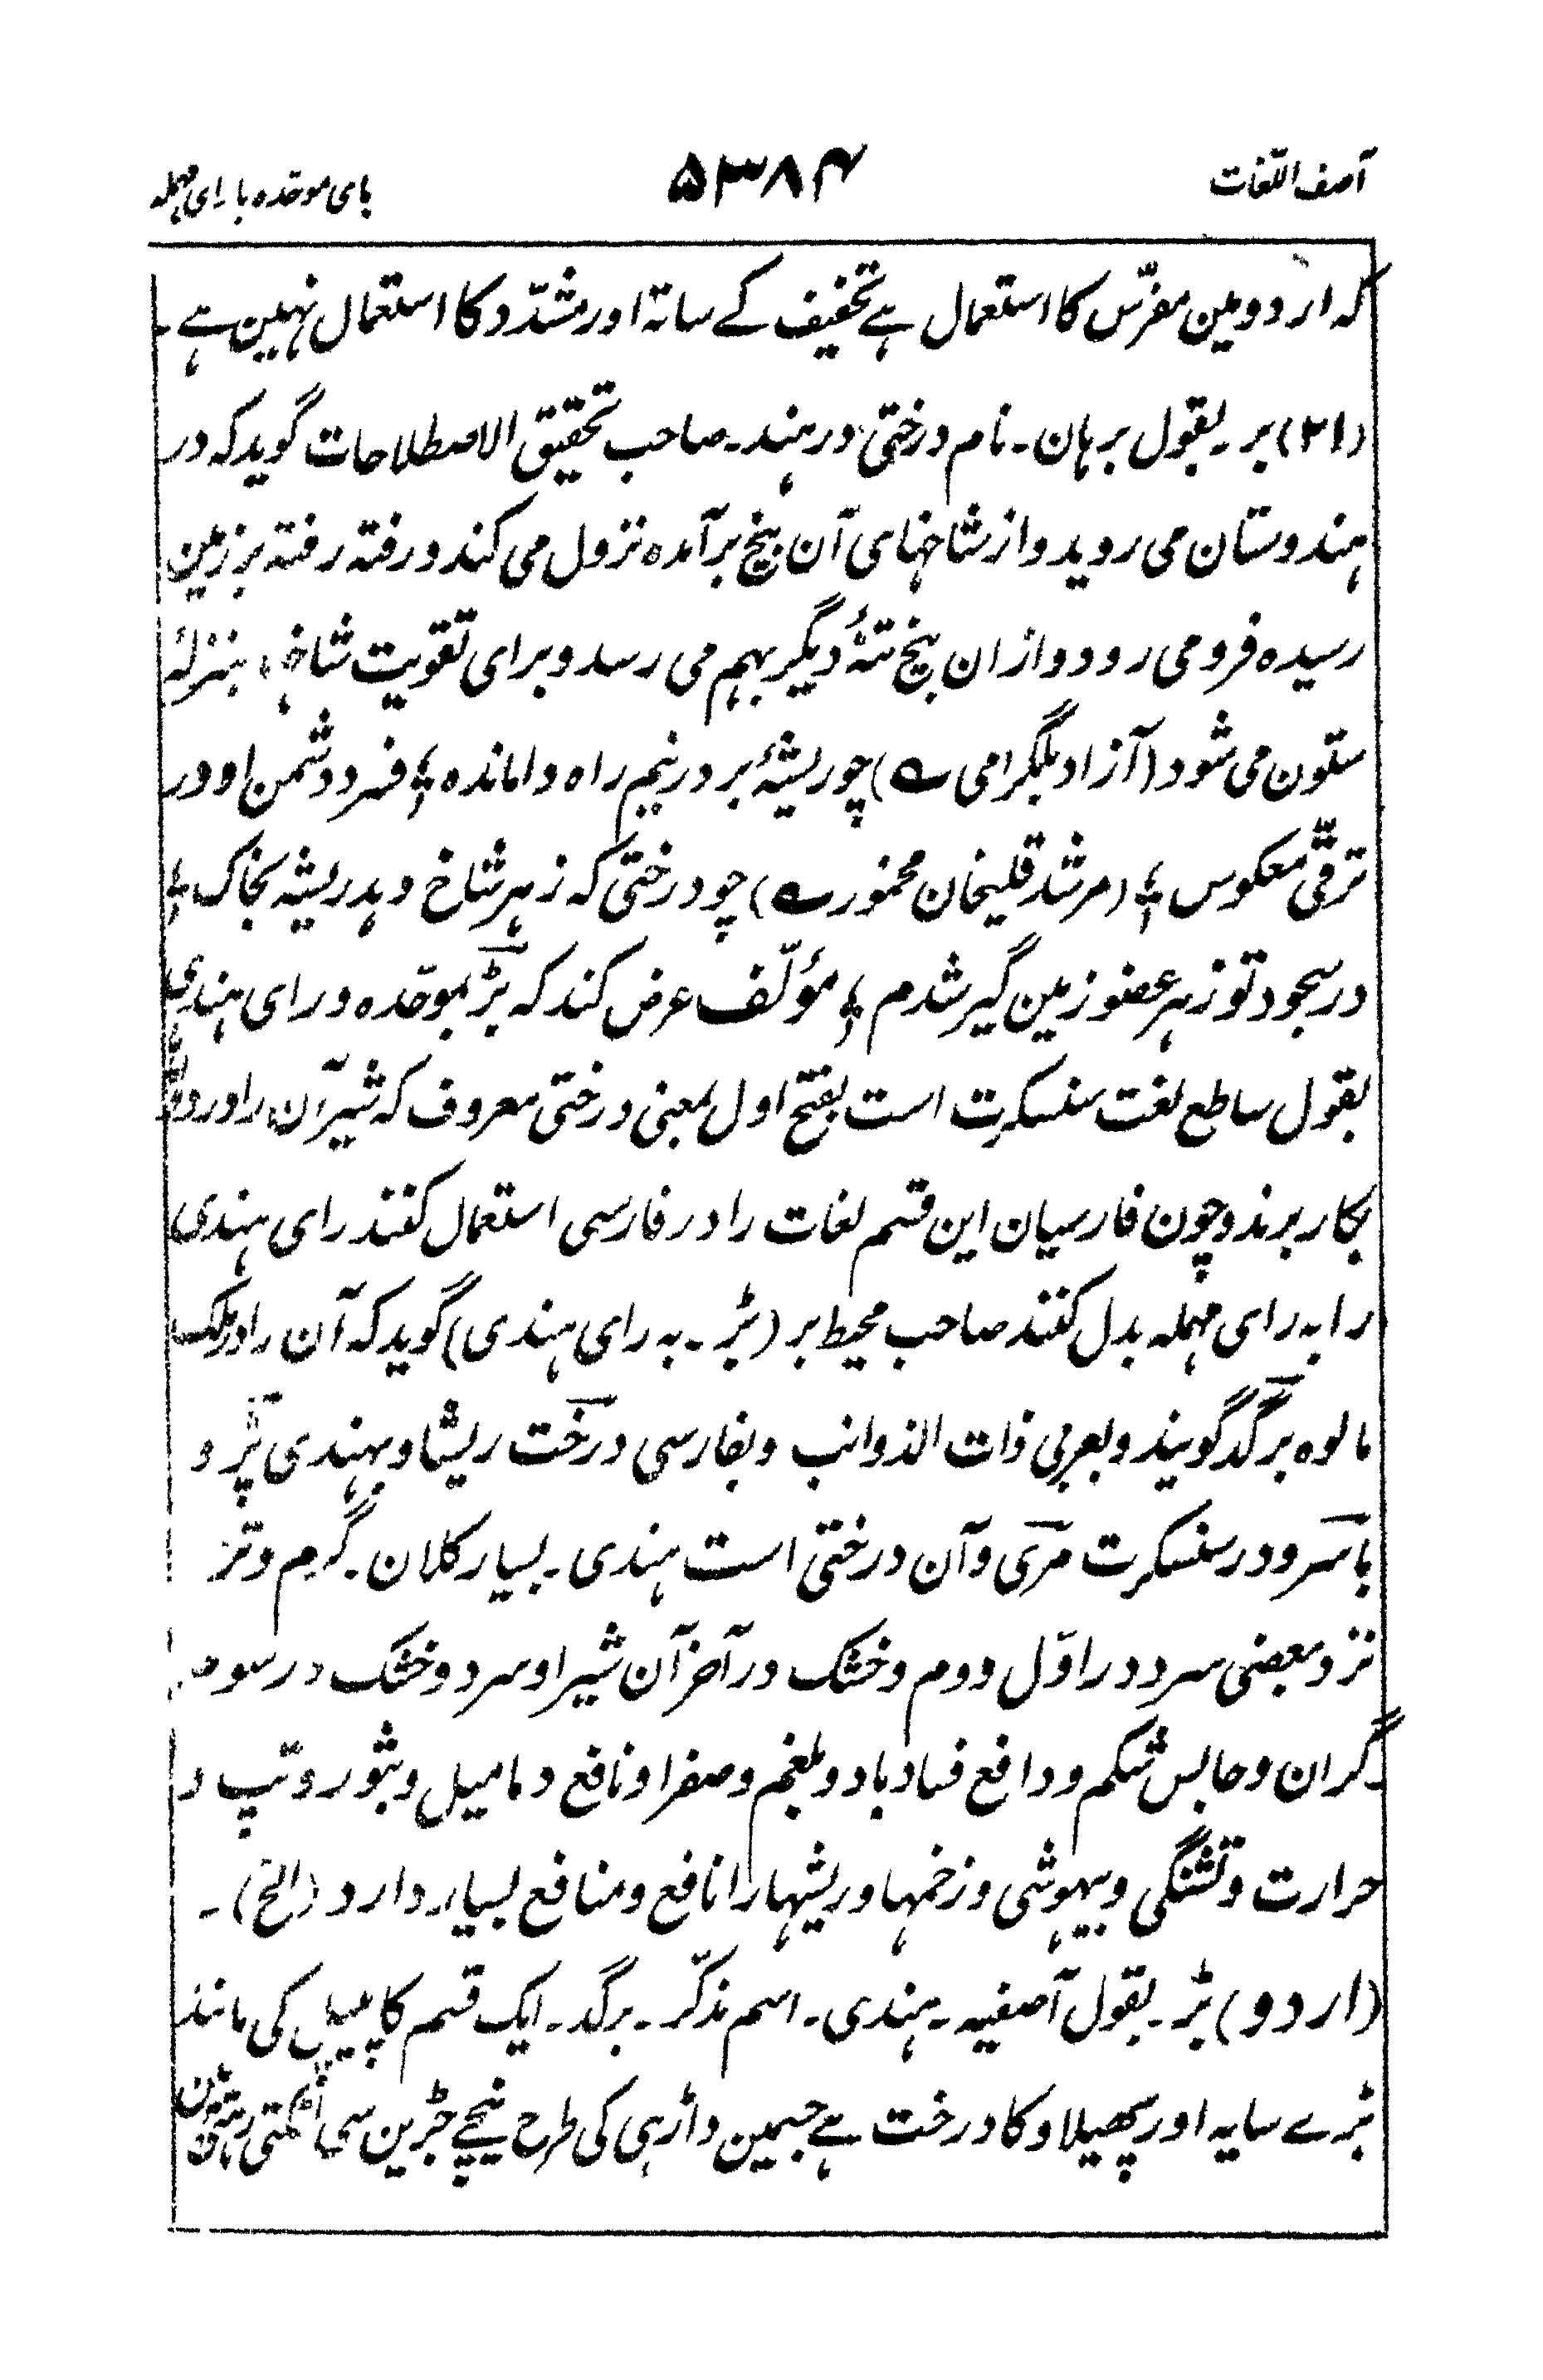 آصف اللّغات
۵۳۸۴
بای موحّده با رای مہملہ
کہ اردو مین مفرّس کا استعمال ہے تخفیف کے ساتہ اور مشدّد کا استعمال نہین ہے ۔
(۲۱) بر ۔ بقول برہان ۔ نام درختی در ہند ۔ صاحب تحقیق الاصطلاحات گوید کہ در
ہندوستان می روید و از شاخہای آن بیخ برآمدہ نزول می کند و رفتہ رفتہ بر زمین
رسیدہ فرو می رود و ازان بیخ تنۂ دیگر بہم می رسد و برای تقویت شاخہا بمنزلۂ
ستون می شود (آزاد بلگرامی ے) چو ریشۂ بر در نیم راہ واماندہ ؛ فسرد دشمن او در
ترقّیِ معکوس ؛ (مرشد قلیخان مخمور ے) چو درختی کہ ز ہر شاخ دہد ریشہ بخاک ؛
در سجود تو ز ہر عضو زمین گیر شدم ؛ مؤلّف عرض کند کہ بڑ بموحّدہ و رای ہندی
بقول ساطع لغت سنسکرت است بفتح اول بمعنی درختی معروف کہ شیر آن را در دوا
بکار برند و چون فارسیان این قسم لغات را در فارسی استعمال کنند رای ہندی
را بہ رای مہملہ بدل کنند صاحب محیط بر (بڑ ۔ بہ رای ہندی) گوید کہ آن را در ملک
مالوہ برگد گویند و بعربی ذات الذوانب و بفارسی درخت ریشا و بہندی بڑ و
باسرو در سنسکرت مری و آن درختی است ہندی ۔ بسیار کلان ۔ گرم و تر
نزد بعضی سرد در اوّل دوم و خشک در آخر آن شیر او سرد و خشک در سوم
گران و حابس شکم و دافع فساد باد و بلغم و صفرا و نافع دمامیل و بثور و تپ و
حرارت و تشنگی و بیہوشی و زخمہا و ریشہا را نافع و منافع بسیار دارد (الخ) ۔
(اردو) بڑ ۔ بقول آصفیہ ۔ ہندی ۔ اسم مذکّر ۔ برگد ۔ ایک قسم کا پیپل کی مانند
بڑے سایہ اور پھیلاو کا درخت ہے جسمین داڑہی کی طرح نیچے جڑین سی لٹکتی رہتی ہین